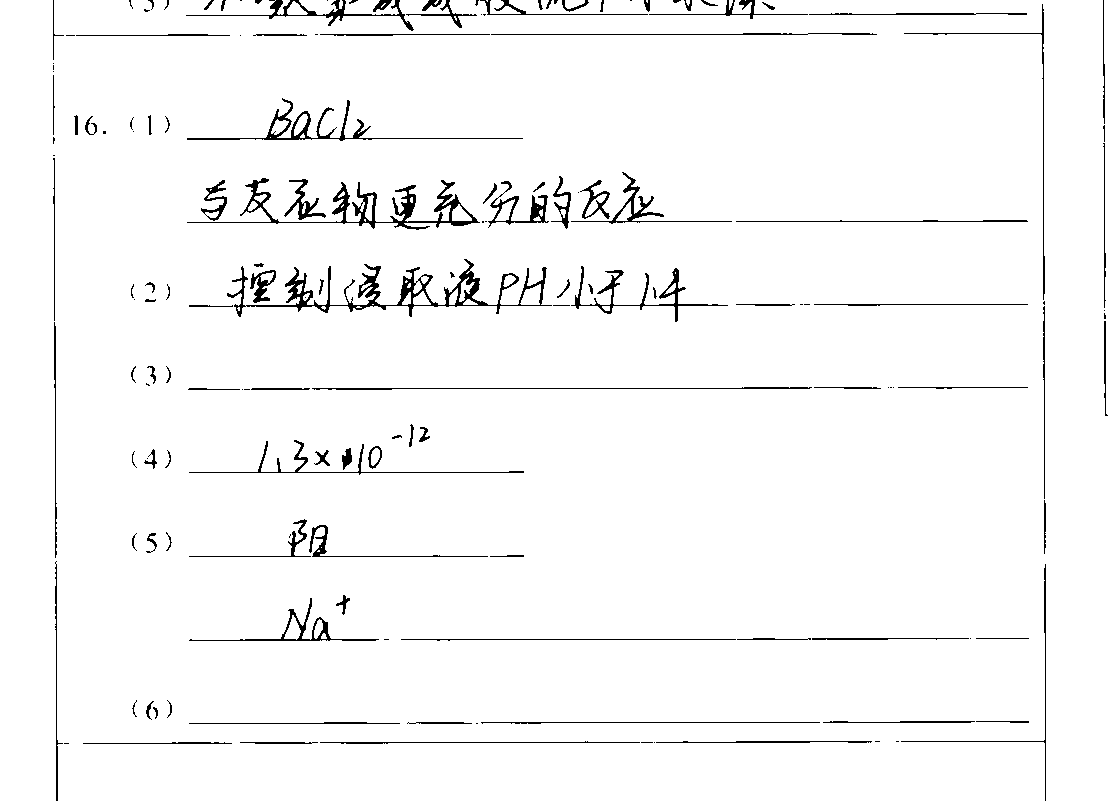 (3)
16.(1) BaCl₂
与反应物更充分的反应
(2) 控制浸取液PH小于14
(3)
(4) 1.3×10⁻¹²
(5) 阳
Na⁺
(6)